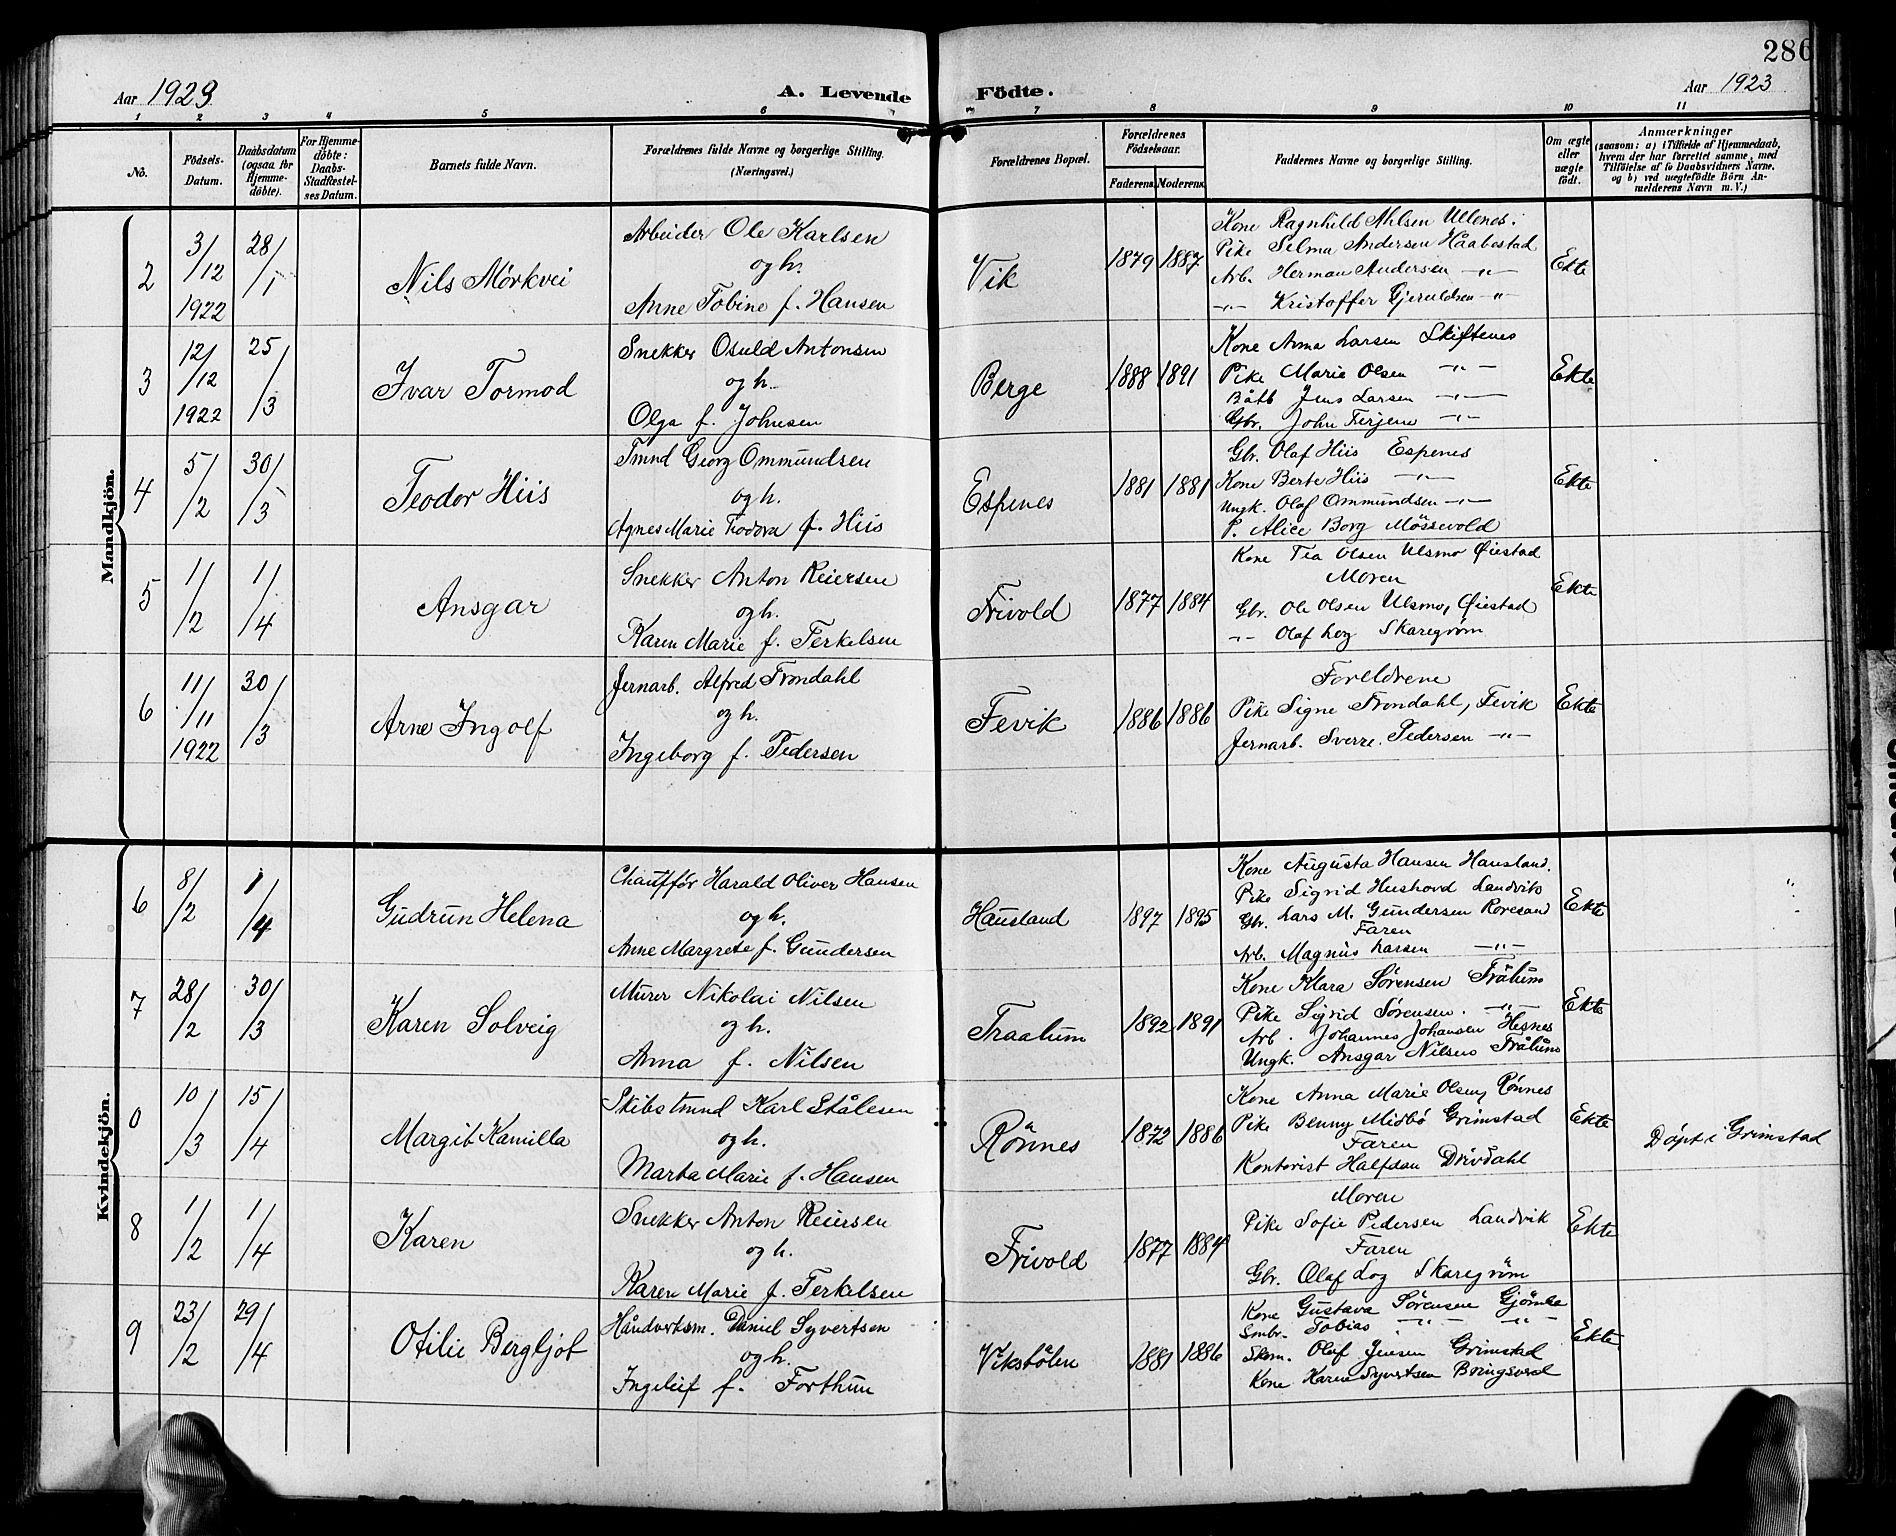 286
Aar 1923
A. Levende Födte.
Aar 1923
1 2 3 4 5 6 7 8 9 10 11
No.
Födsels-Datum.
Daabsdatum (ogsaa for Hjemme-döbte).
For Hjemme-döbte: Daabs-Stadfæstel-ses Datum.
Barnets fulde Navn.
Forældrenes fulde Navne og borgerlige Stilling.
(Næringsvei.)
Forældrenes Bopæl.
Forældrenes Födselsaar.
Faderens. Moderens.
Faddernes Navne og borgerlige Stilling.
Om ægte eller uægte födt.
Anmærkninger
(saasom: a) i Tilfælde af Hjemmedaab, hvem der har forrettet samme, med Tilföielse af to Daabsvidners Navne, og b) ved uægtefödte Börn An-melderens Navn m. V.)
Mandkjön.
2
3/12 1922
28/1
Nils Mörkvei
Arbeider Ole Karlsen
og h.
Anne Tobine f. Hansen
Vik
1879 1887
Kone Ragnhild Ahlsen Ullenes.
Pike Selma Andersen Håabestad
Arb. Herman Andersen -"-
-"- Kristoffer Gjeruldsen -"-
Ekte
3
12/12 1922
25/3
Ivar Tormod
Snekker Osuld Antonsen
og h.
Olga f. Johnsen
Berge
1888 1891
Kone Anna Larsen Skiftenes
Pike Marie Olsen -"-
Båtb Jens Larsen -"-
Gbr. John Terjesen -"-
Ekte
4
5/2
30/3
Teodor Hiis
Tmnd Georg Ommundsen
og h.
Agnes Marie Teodora f. Hiis
Espenes
1881 1881
Gbr. Olaf Hiis Espenes
Kone Berte Hiis -"-
Ungk. Olaf Ommundsen -"-
P. Alice Borg Mössevold
Ekte
5
1/2
1/4
Ansgar
Snekker Anton Reiersen
og h.
Karen Marie f. Terkelsen
Frivold
1877 1884
Kone Tea Olsen Ulsmo Öiestad
Moren
Gbr. Ole Olsen Ulsmo, Öiestad
-"- Olaf Log Skaregrøm
Ekte
6
11/11 1922
30/3
Arne Ingolf
Jernarb. Alfred Trondahl
og h.
Ingeborg f. Pedersen
Fevik
1886 1886
Foreldrene
Pike Signe Trondahl, Fevik
Jernarb. Sverre Pedersen -"-
Ekte
Kvindekjön.
6
8/2
1/4
Gudrun Helena
Chauffør Harald Oliver Hansen
og h.
Anne Margrete f. Gundersen
Hausland
1897 1895
Kone Augusta Hansen Hausland.
Pike Sigrid Hushovd Landvik
Gbr. Lars M. Gundersen Roresan
Faren
Arb. Magnus Larsen -"-
Ekte
7
28/2
30/3
Karen Solveig
Murer Nikolai Nilsen
og h.
Anna f. Nilsen
Traalum
1892 1891
Kone Klara Sørensen Trålum
Pike Sigrid Sørensen. -"-
Arb. Johannes Johansen Hesnes
Ungk. Ansgar Nilsen Trålum
Ekte
0
10/3
15/4
Margit Kamilla
Skibstmnd Karl Stålesen
og h.
Marta Marie f. Hansen
Rønnes
1872 1886
Kone Anna Marie Olsen, Rønnes
Pike Benny Midbø Grimstad
Faren
Kontorist Halfdan Drivdahl
Ekte
Døpt i Grimstad
8
1/2
1/4
Karen
Snekker Anton Reiersen
og h.
Karen Marie f. Terkelsen
Frivold
1877 1884
Moren
Pike Sofie Pedersen Landvik
Faren
Gbr. Olaf Log Skaregrøm
Ekte
9
23/2
29/4
Otilie Bergljot
Håndverksm. Daniel Syvertsen
og h.
Ingeleif f. Forthun
Vikstølen
1881 1886
Kone Gustava Sørensen
Smbr. Tobias -"- -"-
Skom. Olaf Jensen Grimstad
Kone Karen Syvertsen Bringsverd
Ekte